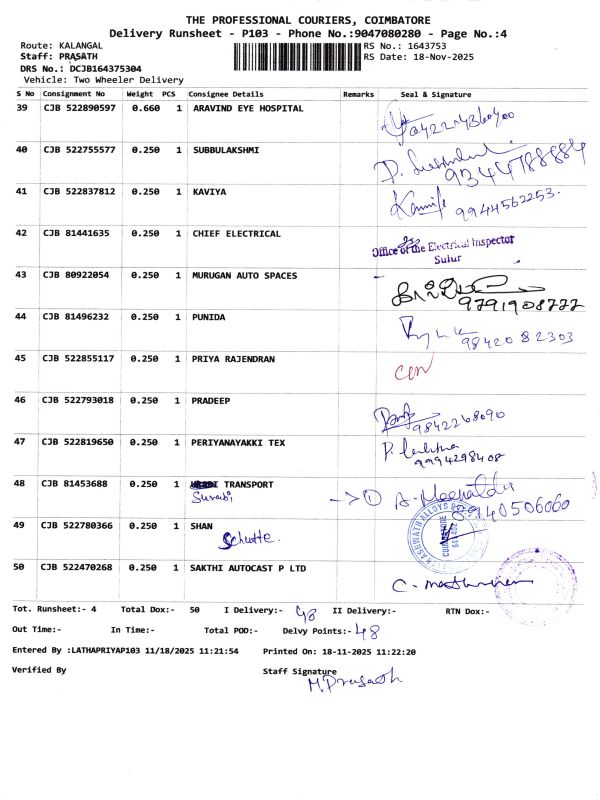 THE PROFESSIONAL COURIERS, COIMBATORE
Delivery Runsheet - P103 - Phone No.:9047080280 - Page No.:4
Route: KALANGAL RS No.: 1643753
Staff: PRASATH RS Date: 18-Nov-2025
DRS No.: DCJB164375304
Vehicle: Two Wheeler Delivery
S No Consignment No Weight PCS Consignee Details Remarks Seal & Signature
39 CJB 522890597 0.660 1 ARAVIND EYE HOSPITAL
40 CJB 522755577 0.250 1 SUBBULAKSHMI
9344788884
41 CJB 522837812 0.250 1 KAVIYA
9944562253.
42 CJB 81441635 0.250 1 CHIEF ELECTRICAL
Office of the Electrical Inspector
Sulur
43 CJB 80922054 0.250 1 MURUGAN AUTO SPACES
9791908777
44 CJB 81496232 0.250 1 PUNIDA
9842082303
45 CJB 522855117 0.250 1 PRIYA RAJENDRAN
46 CJB 522793018 0.250 1 PRADEEP
9842268090
47 CJB 522819650 0.250 1 PERIYANAYAKKI TEX
9994298408
48 CJB 81453688 0.250 1 TRANSPORT
-> 1
8940506060
49 CJB 522780366 0.250 1 SHAN
50 CJB 522470268 0.250 1 SAKTHI AUTOCAST P LTD
Tot. Runsheet:- 4 Total Dox:- 50 I Delivery:- 48 II Delivery:- RTN Dox:-
Out Time:- In Time:- Total POD:- Delvy Points:- 48
Entered By :LATHAPRIYAP103 11/18/2025 11:21:54 Printed On: 18-11-2025 11:22:20
Verified By Staff Signature
M. Prasath